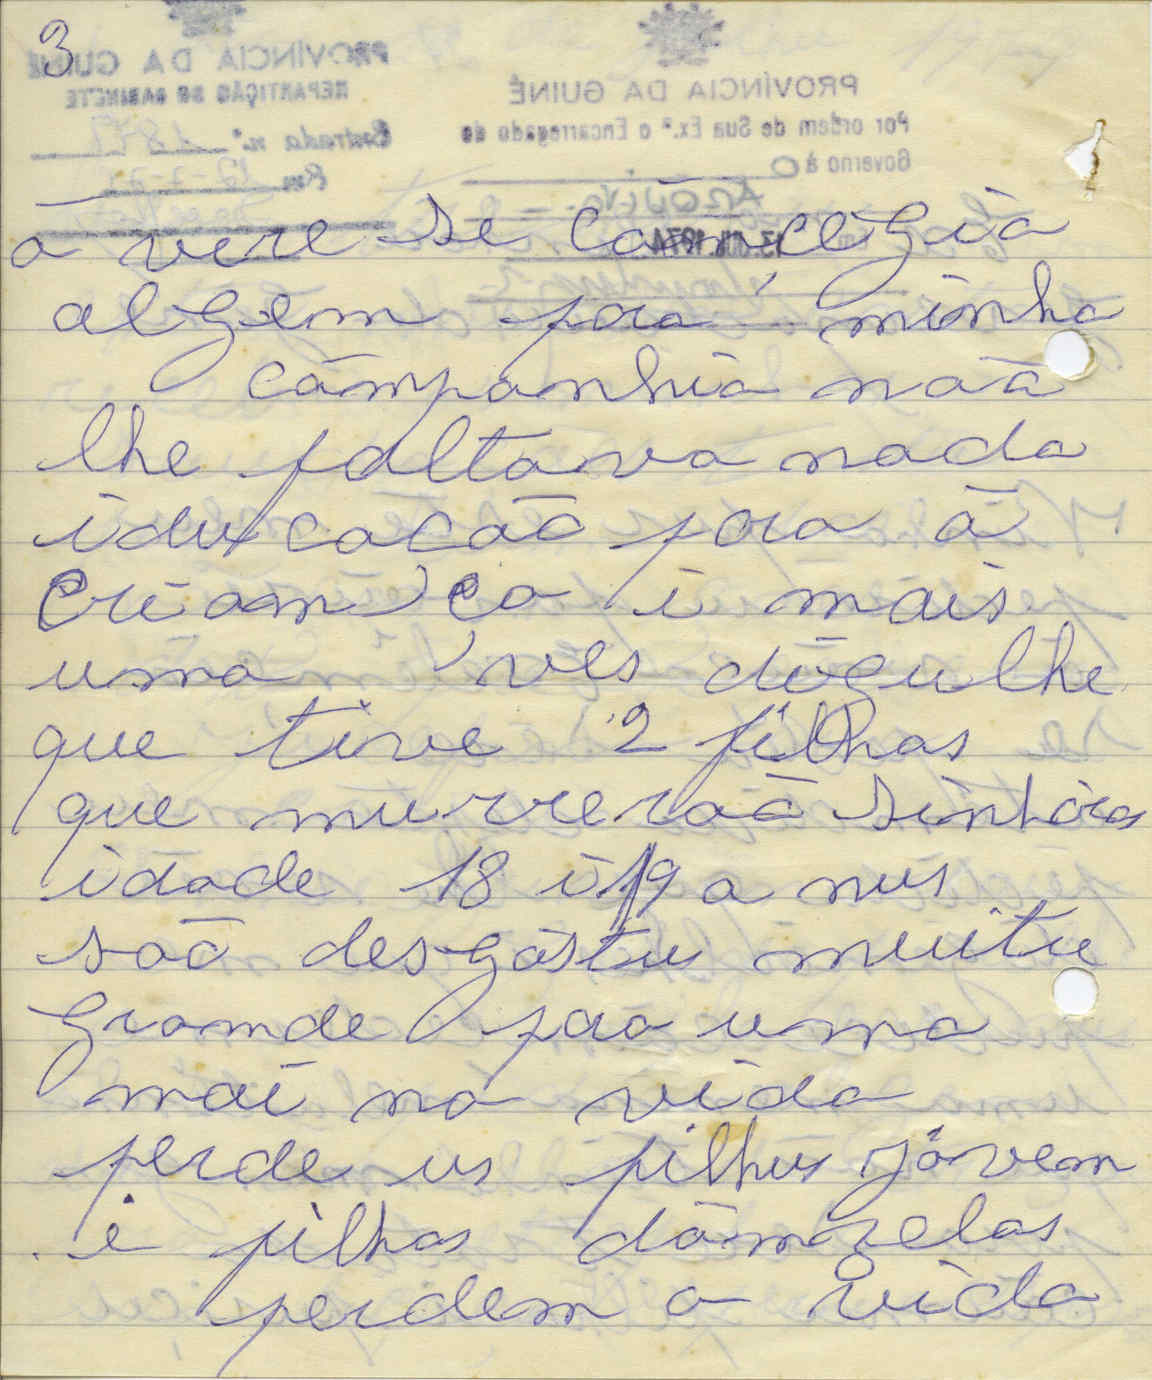 3
PROVÍNCIA DA GUINÉ
REPARTIÇÃO DO GABINETE
Entrada n.º 1877
PROVÍNCIA DA GUINÉ
Por ordem de Sua Ex.ª o Encarregado do
Governo à
ARQUIVO
13. JUL. 1974
a vere se cãmcegia
algem para minha
cãmpanhia naã
lhe faltava nada
idu cacaõ para ã
criamça i mais
uma ves digulhe
que tive 2 filhas
que murreraõ sinhóras
idade 18 i 19 a nus
saõ desgòstus muitu
gramde para uma
mai na vida
perde us filhus jóvem
i filhas dãmzelas
perdem a vida